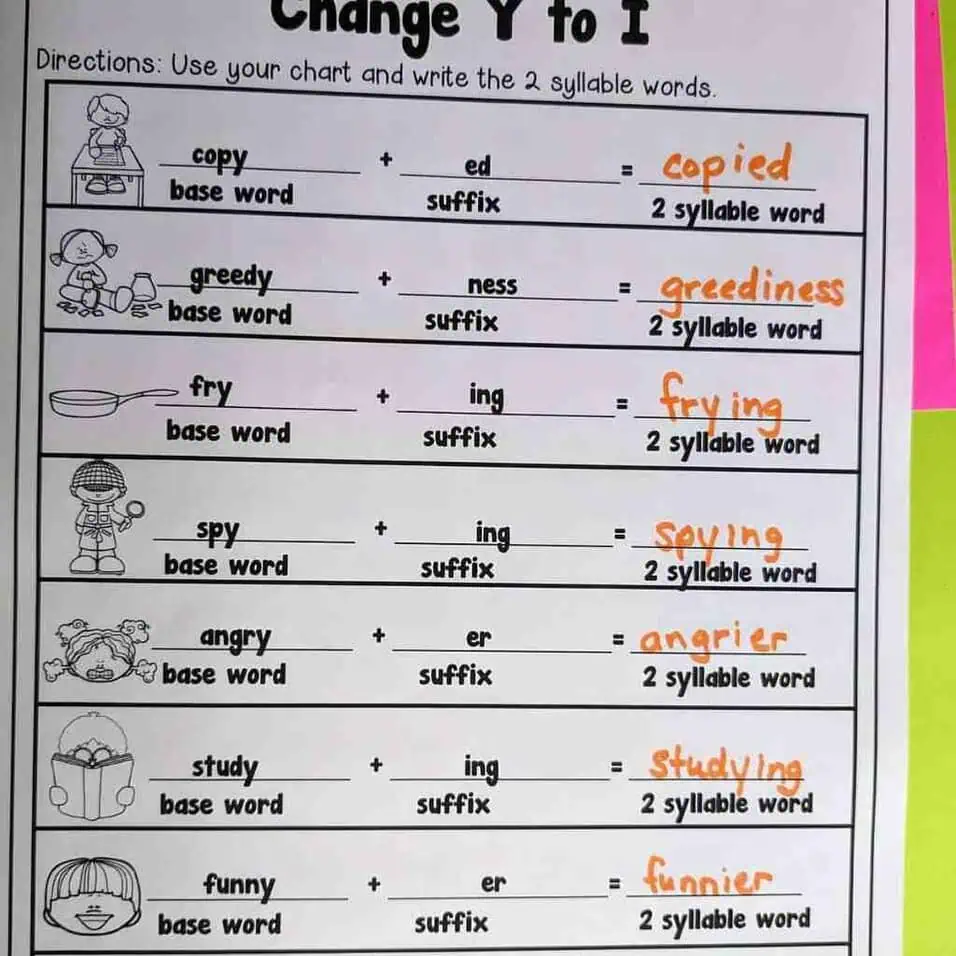 Change Y to I
Directions: Use your chart and write the 2 syllable words.
copy + ed = copied
base word suffix 2 syllable word
greedy + ness = greediness
base word suffix 2 syllable word
fry + ing = frying
base word suffix 2 syllable word
spy + ing = spying
base word suffix 2 syllable word
angry + er = angrier
base word suffix 2 syllable word
study + ing = studying
base word suffix 2 syllable word
funny + er = funnier
base word suffix 2 syllable word